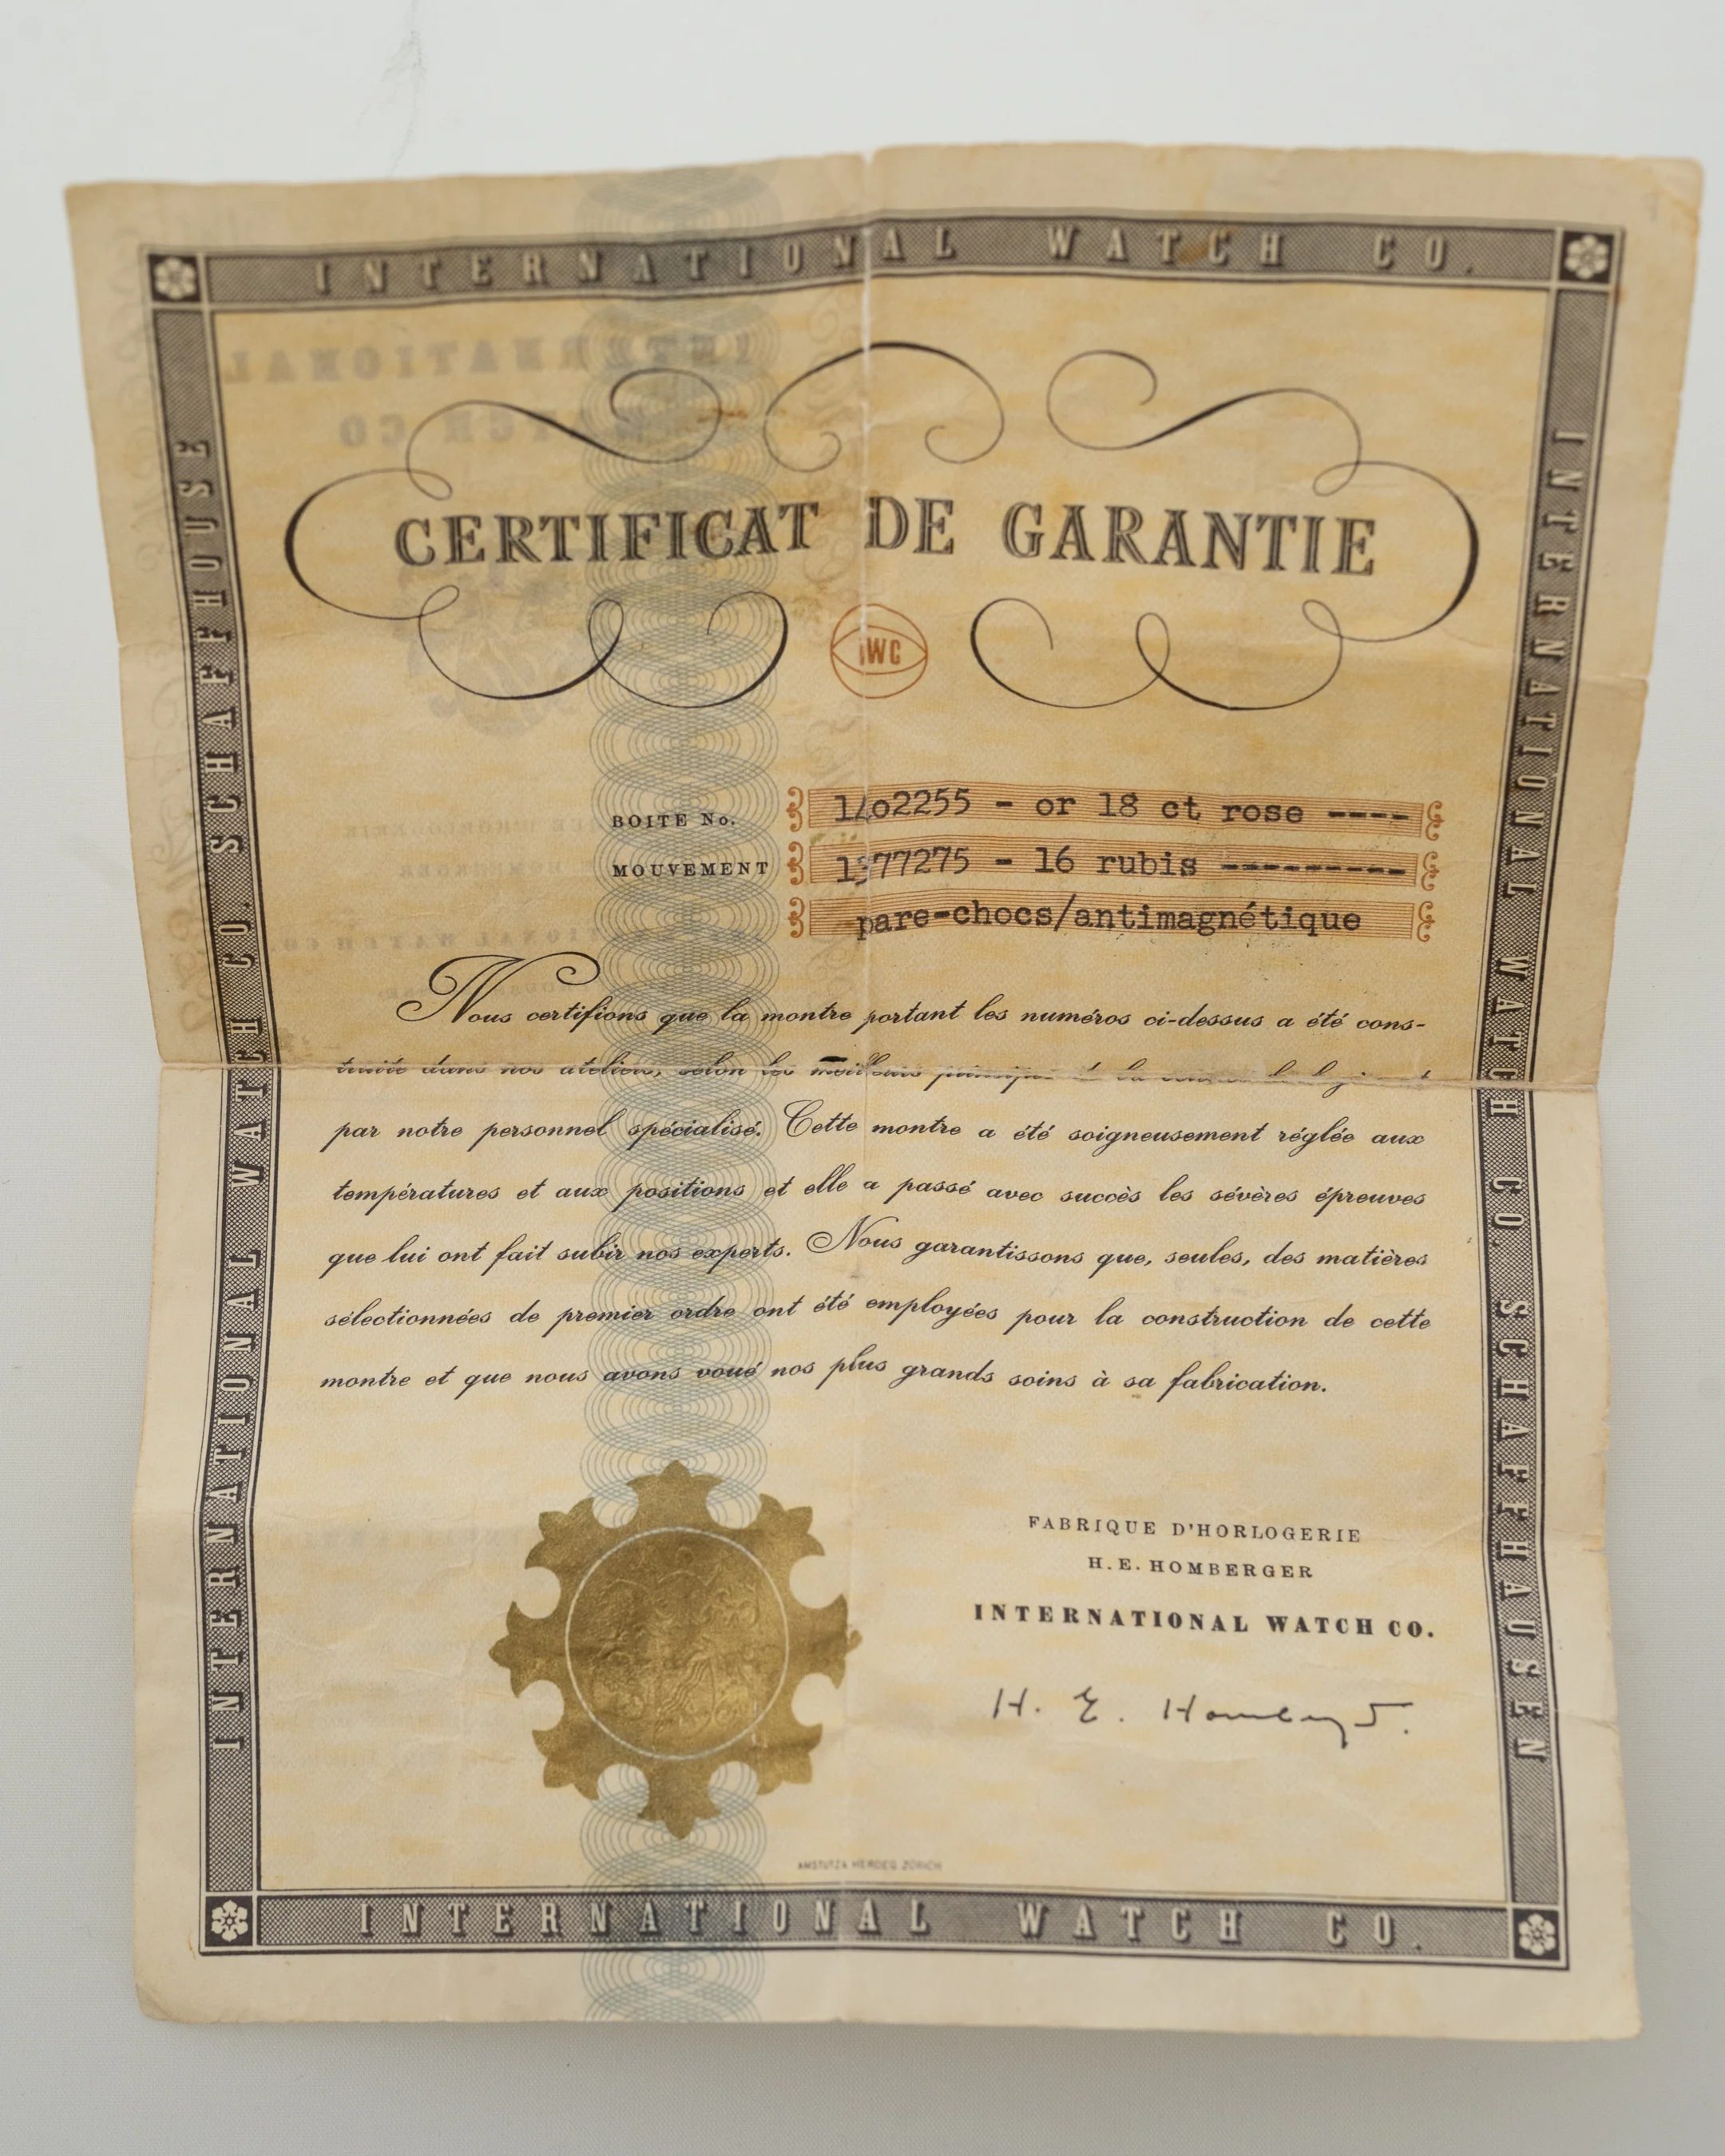 INTERNATIONAL WATCH CO.
INTERNATIONAL WATCH CO. SCHAFFHOUSE
INTERNATIONAL WATCH CO. SCHAFFHAUSEN
CERTIFICAT DE GARANTIE
IWC
BOITE No. 1402255 - or 18 ct rose ----
MOUVEMENT 1577275 - 16 rubis ---------
pare-chocs/antimagnétique
Nous certifions que la montre portant les numéros ci-dessus a été cons-
truite dans nos ateliers, selon les meilleurs
par notre personnel spécialisé. Cette montre a été soigneusement réglée aux
températures et aux positions et elle a passé avec succès les sévères épreuves
que lui ont fait subir nos experts. Nous garantissons que, seules, des matières
sélectionnées de premier ordre ont été employées pour la construction de cette
montre et que nous avons voué nos plus grands soins à sa fabrication.
FABRIQUE D'HORLOGERIE
H. E. HOMBERGER
INTERNATIONAL WATCH CO.
H. E. Homberger
AMSTUTZ & HERDEG ZÜRICH
INTERNATIONAL WATCH CO.